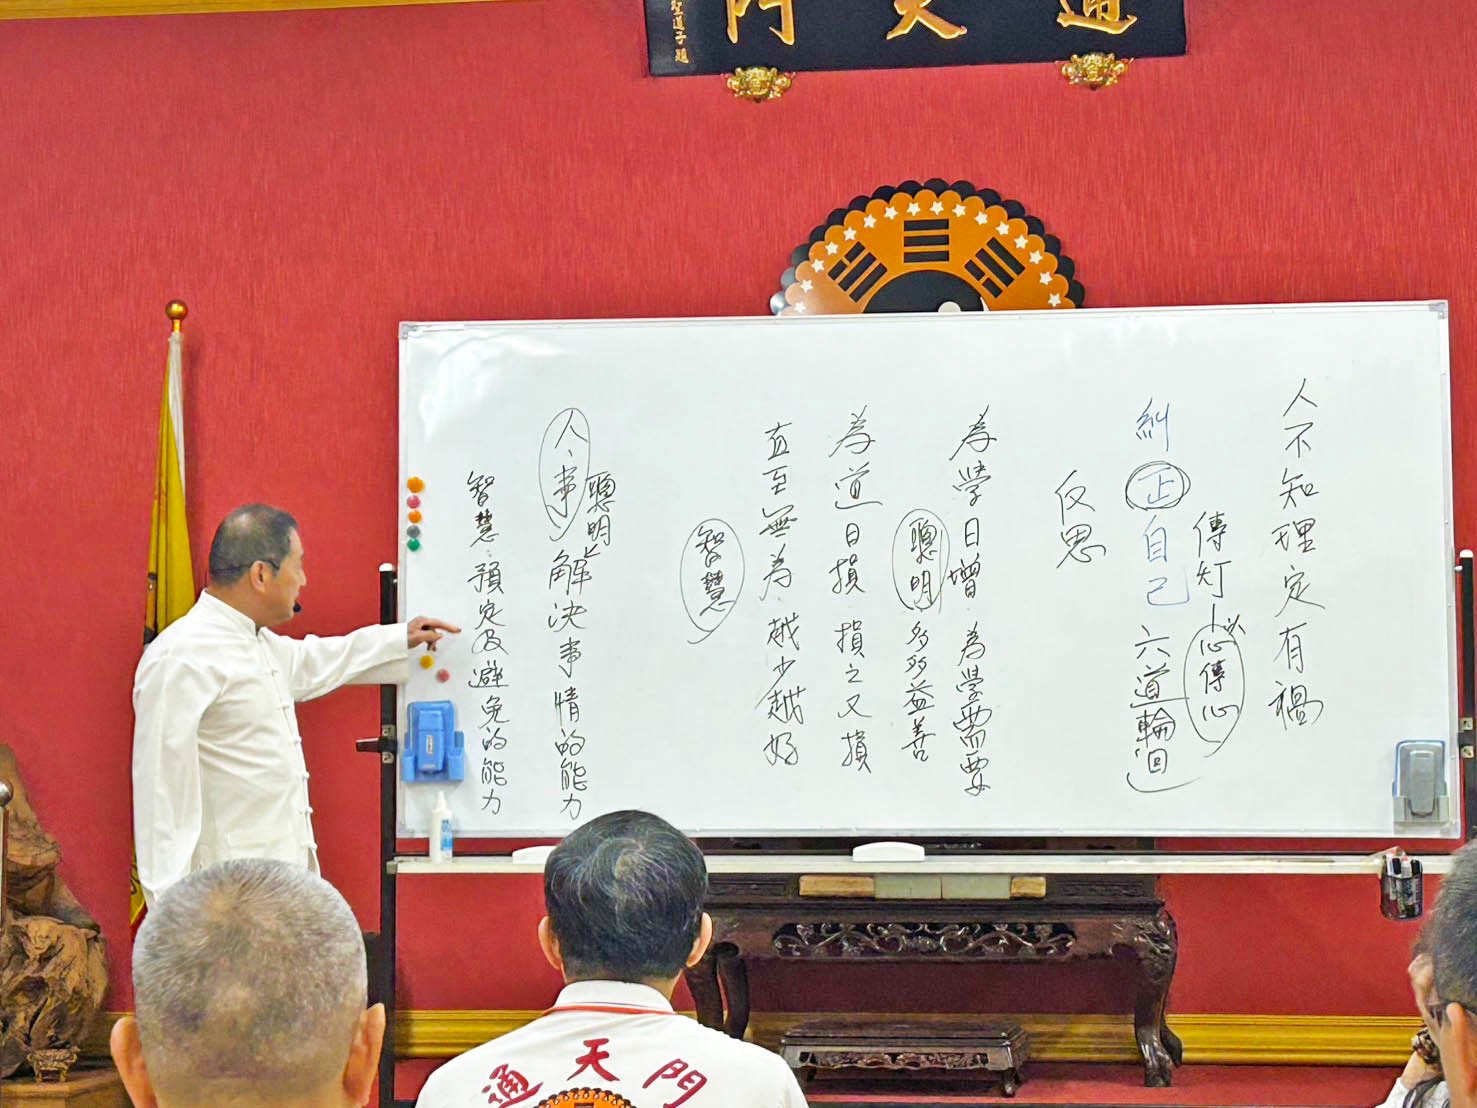 通天門
聖道子題
人不知理定有禍
傳灯心心傳心
糾正自己 六道輪回
反思
為學日增.為學需要
聰明 多多益善
為道日損.損之又損
直至無為.越少越好
智慧
聰明
人、事 解決事情的能力
智慧.預定及避免的能力
通天門